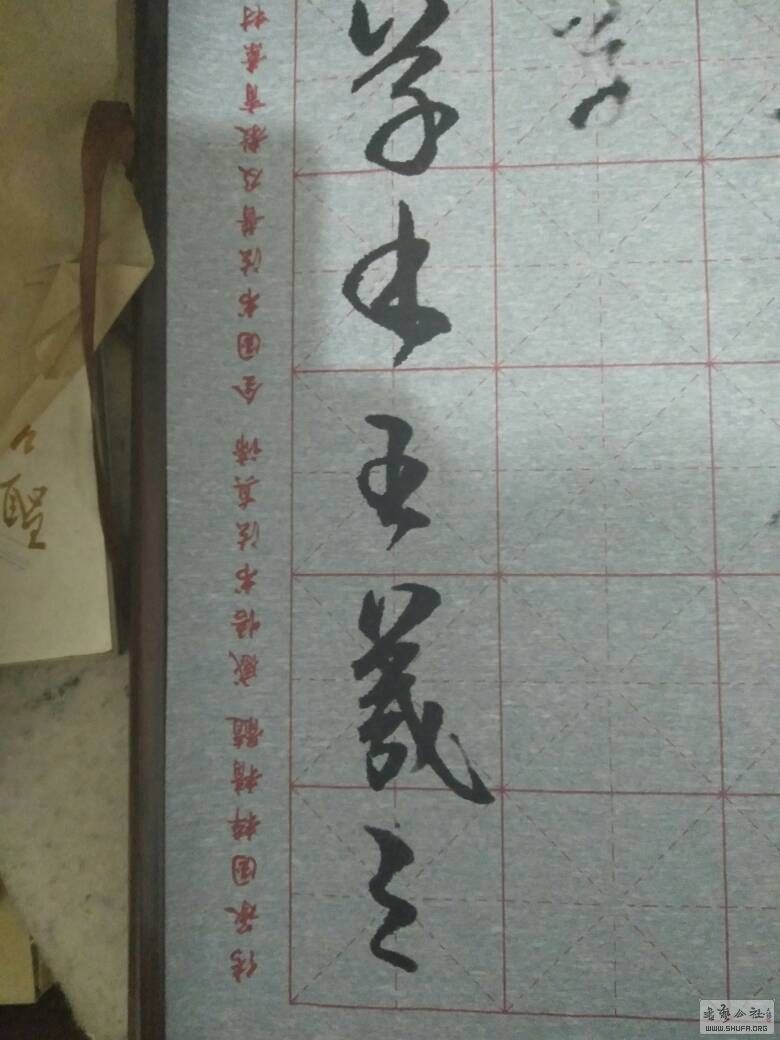 学 王羲之
学
传承国粹精髓 感悟书法真谛 全国书法普及教育素材
醒
书艺公社
WWW.SHUFA.ORG